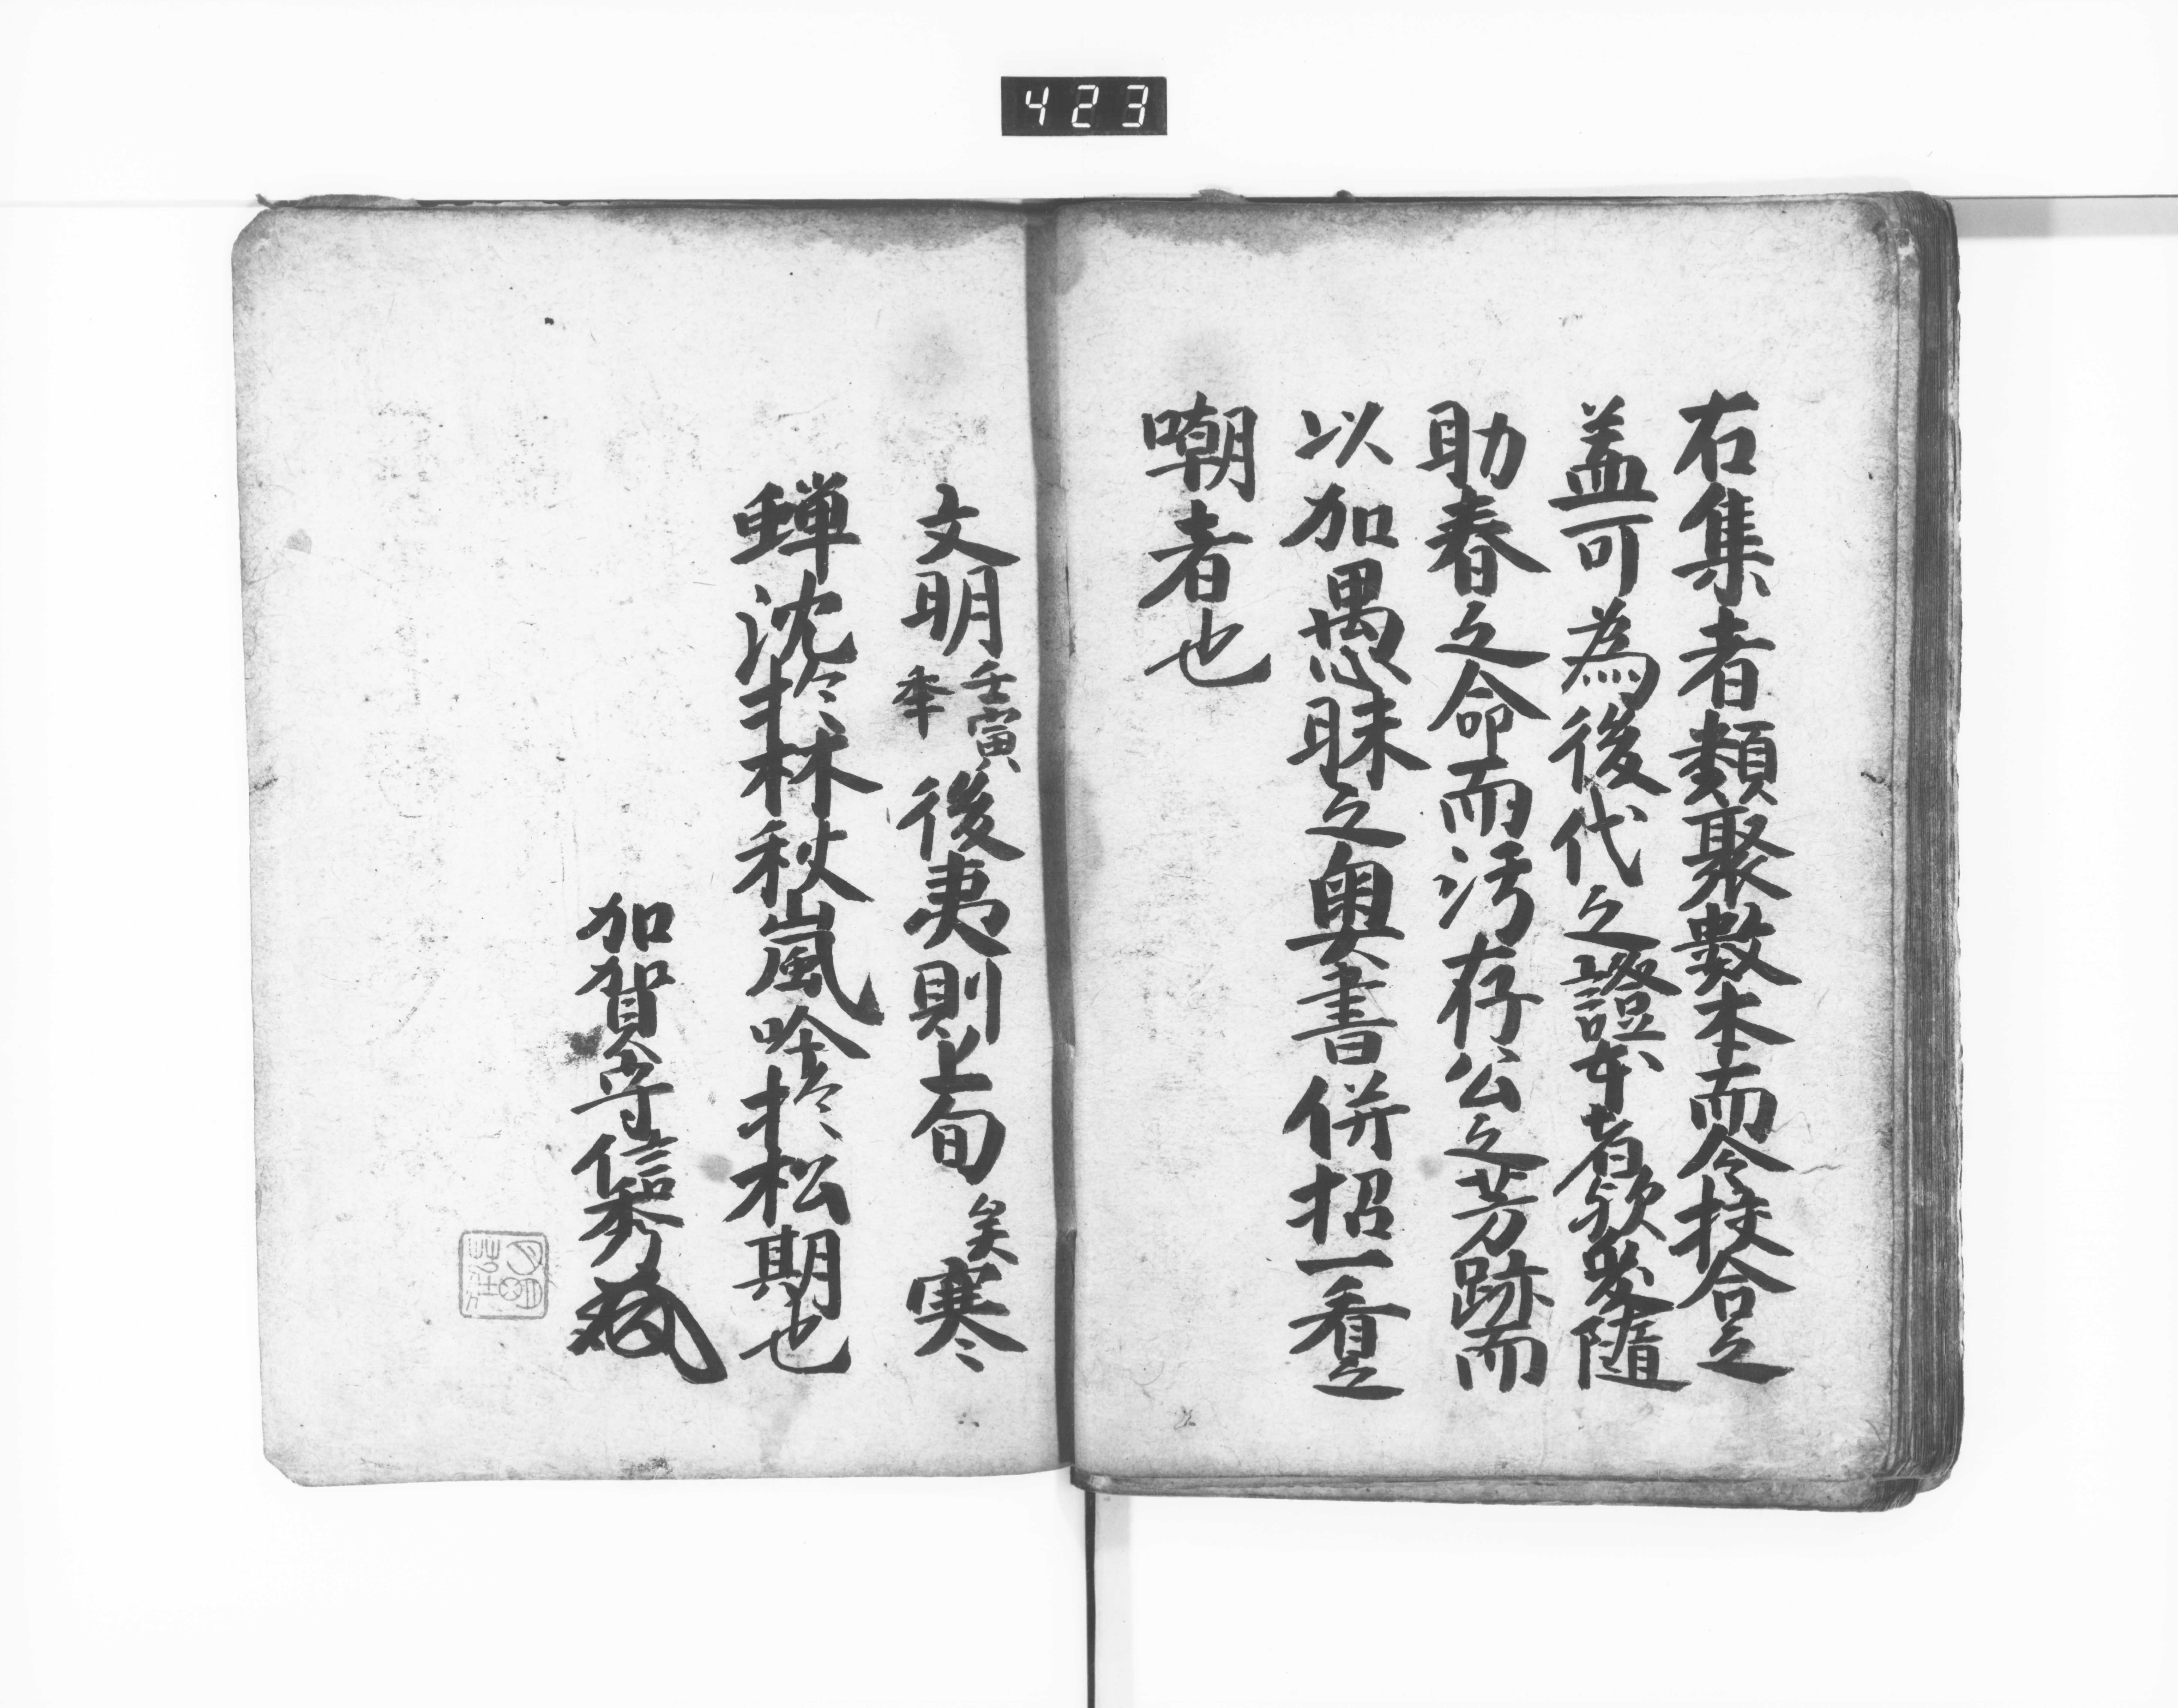 423
右集者類聚數本而令挍合之
蓋可為後代之證本者欤爰隨
助春之命而汚存公之芳跡而
以加愚昧之奥書併招一看之
嘲者也
文明壬寅年後夷則上旬矣寒
蝉沈於林秋嵐吟於松期也
加賀守信秀